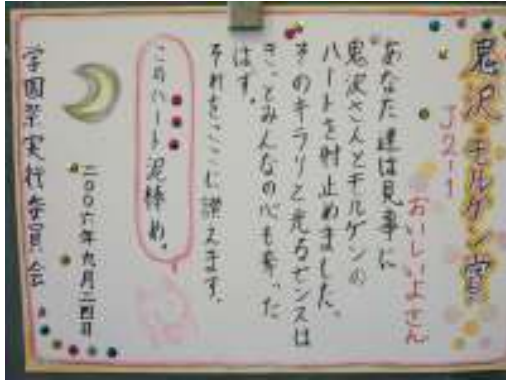 鬼沢・モルゲン賞
J2-1
おいしいよさん
あなた達は見事に
鬼沢さんとモルゲンの
ハートを射止めました。
そのキラリと光るセンスは
きっとみんなの心も奪った
はず。
それをここに讃えます。
このハート泥棒め。
二〇〇六年九月二四日
学園祭実行委員会